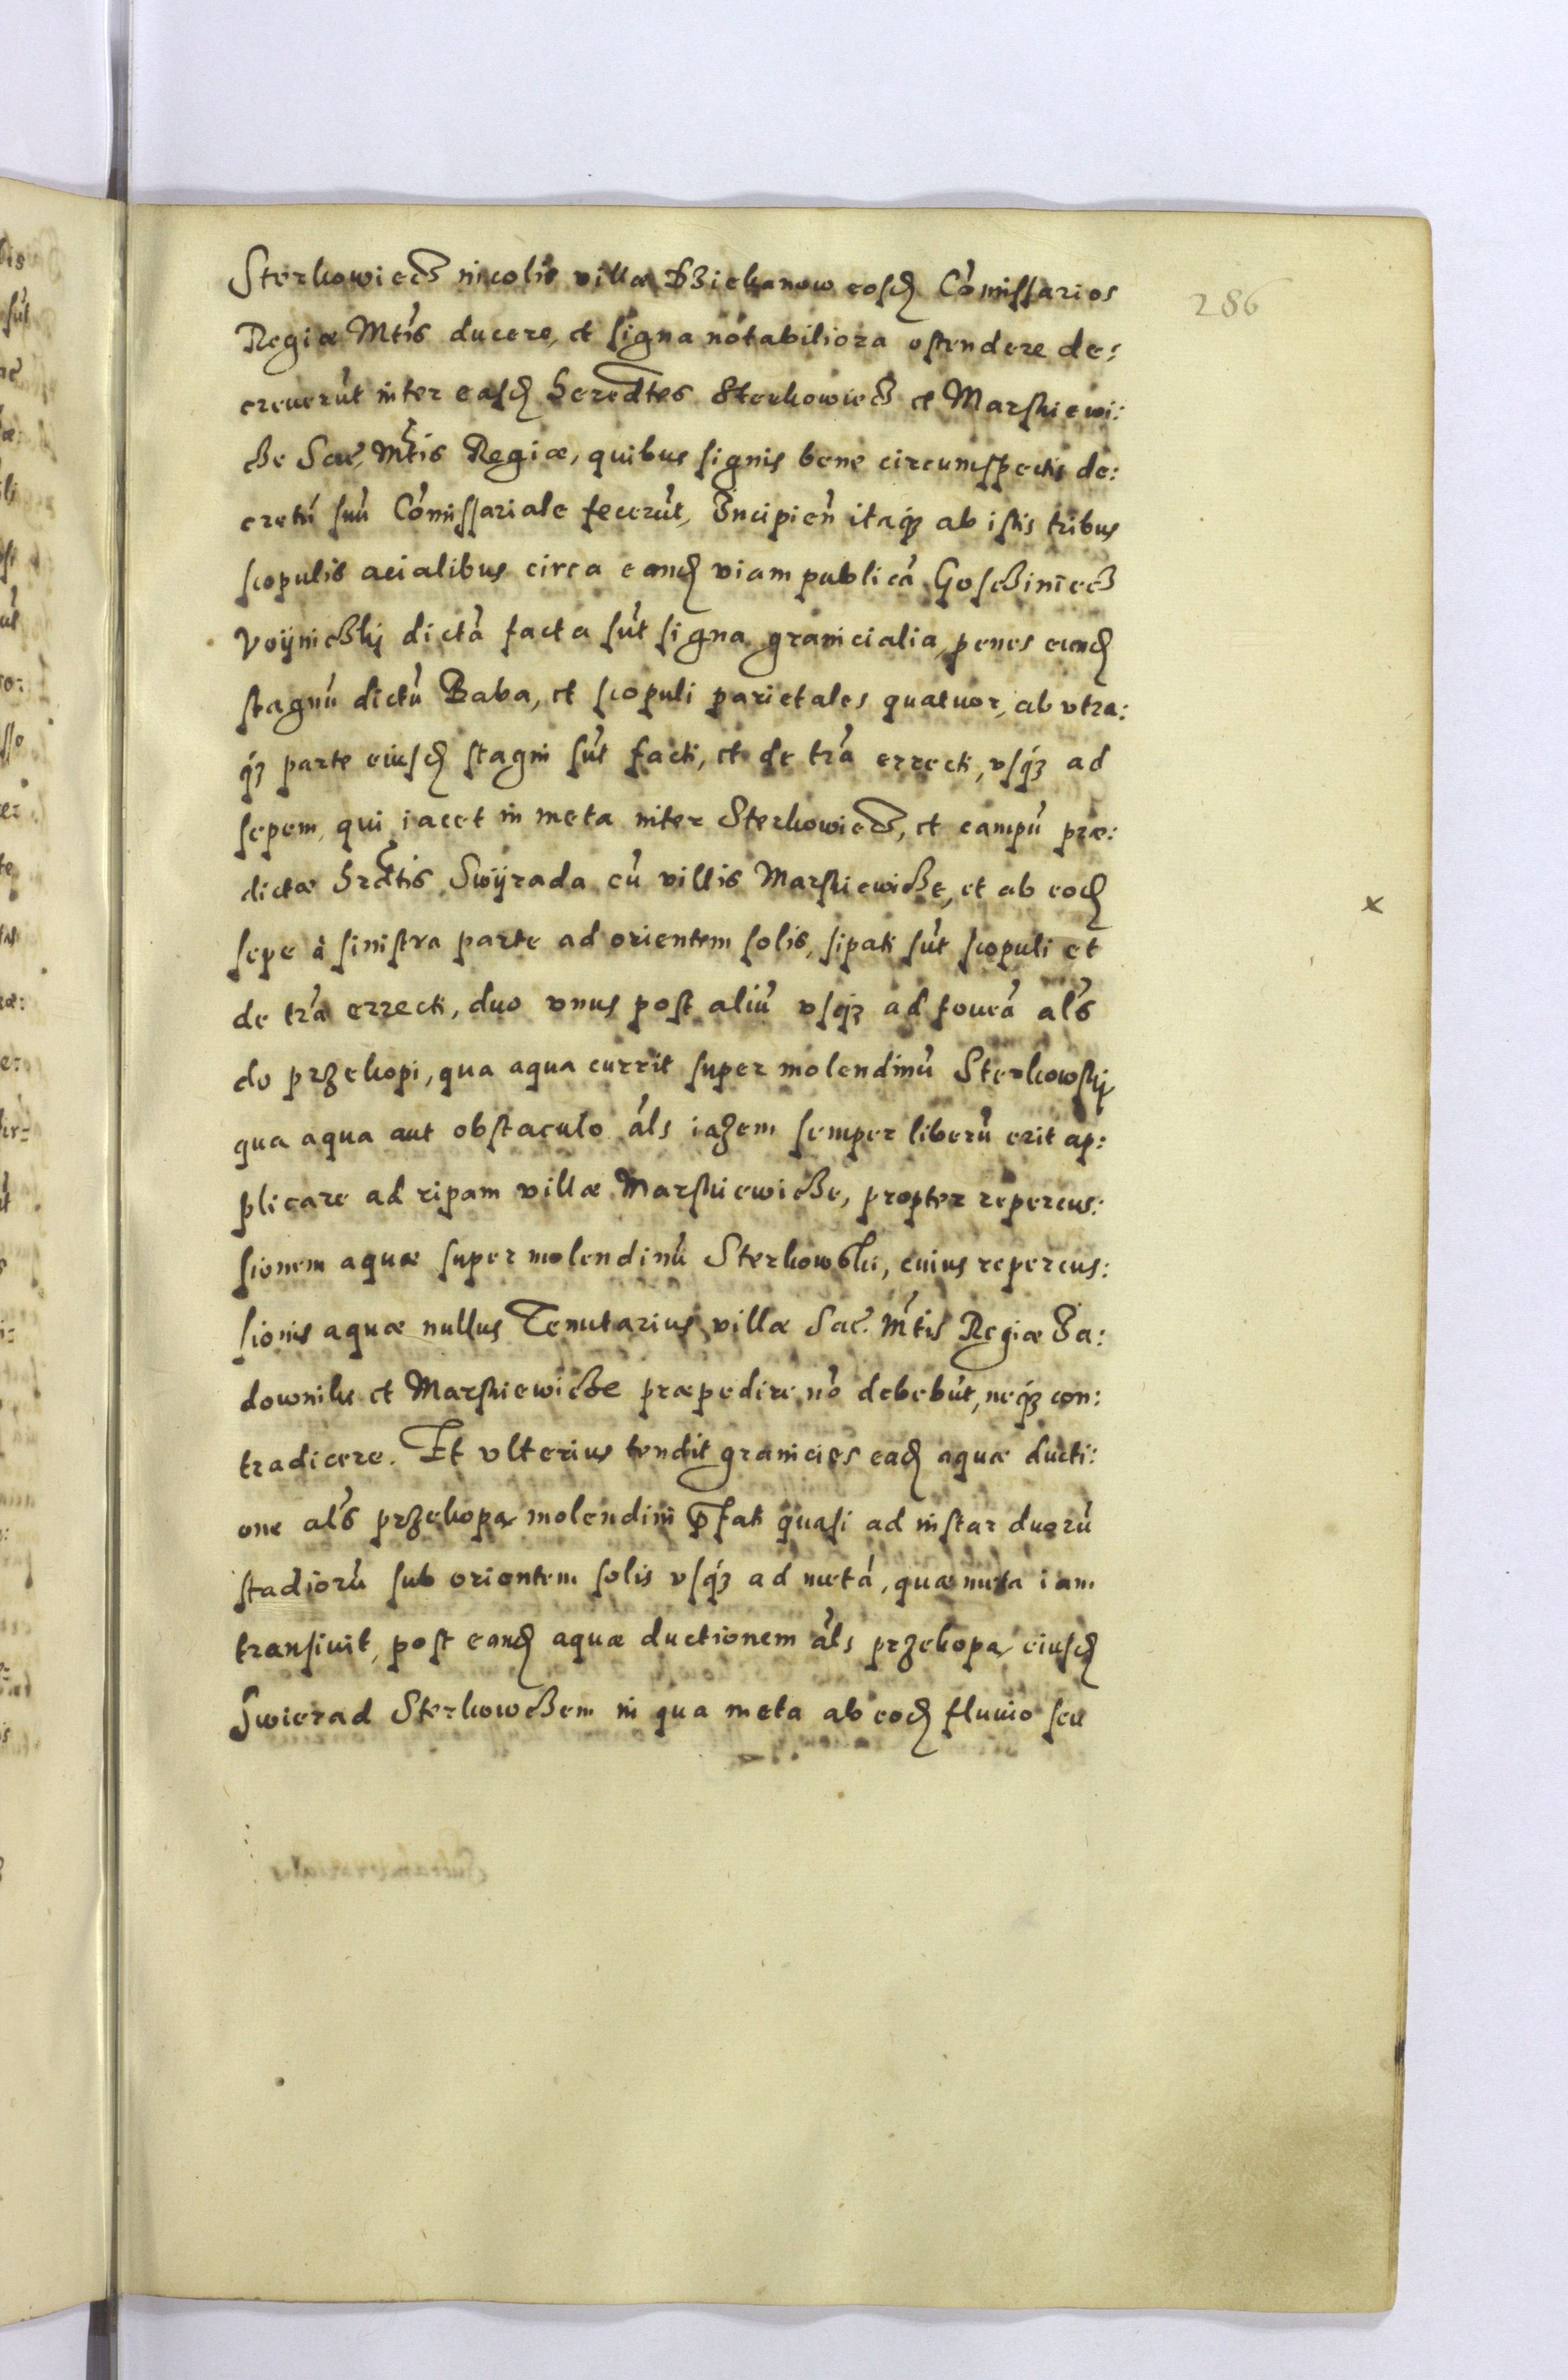 Sterkowiecz incolis villæ Dziekanow eosd Cómissarios
286
Regiæ Mtis ducere, et signa notabiliora ostendere de:
creuerút inter easd heredtes Sterkowiecz et Marskiewi:
cze Sac. Mtis Regiæ, quibus signis bene circumspectis de:
cretú suú Cómissariale fecerút, Incipień itaq́ ab istis tribus
scopulis acialibus circa eand viam publicá Goscziniecz
Voÿniczkÿ dictá facta sút signa granicialia, penes eund
stagnú dictú Baba, et scopuli parietales quatuor, ab vtra:
q́ parte eiusd stagni sút facti, et de trá errecti, vsq́ ad
sepem, qui iacet in meta inter Sterkowiecz, et campú præ:
dictæ hrdtis Swÿrada cú villis Marskiewicze, et ab eod
x
sepe à sinistra parte ad orientem solis, sipati sút scopuli et
de trá errecti, duo vnus post aliú vsq́ ad foueá als
do przekopi, qua aqua currit super molendinú Sterkowskÿ
qua aqua aut obstaculo áls iazem semper liberú erit ap:
plicare ad ripam villæ Marskiewicze, propter repercus:
sionem aquæ super molendinú Sterkowski, cuius repercus:
sionis aquæ nullus Tenutarius villæ Sac. Mtis Regiæ Ja:
downiki et Marskiewicze præpedire nó debebút, neq́ con:
tradicere. Et vlterius tendit granicies ead aquæ ducti:
one als przekopa molendini pfati quasi ad instar duorú
stadiorú sub orientem solis vsq́ ad metá, quæ meta iam
transiuit, post eand aquæ ductionem áls przekopa eiusd
Swierad Sterkowczem in qua meta ab eod fluuio seu